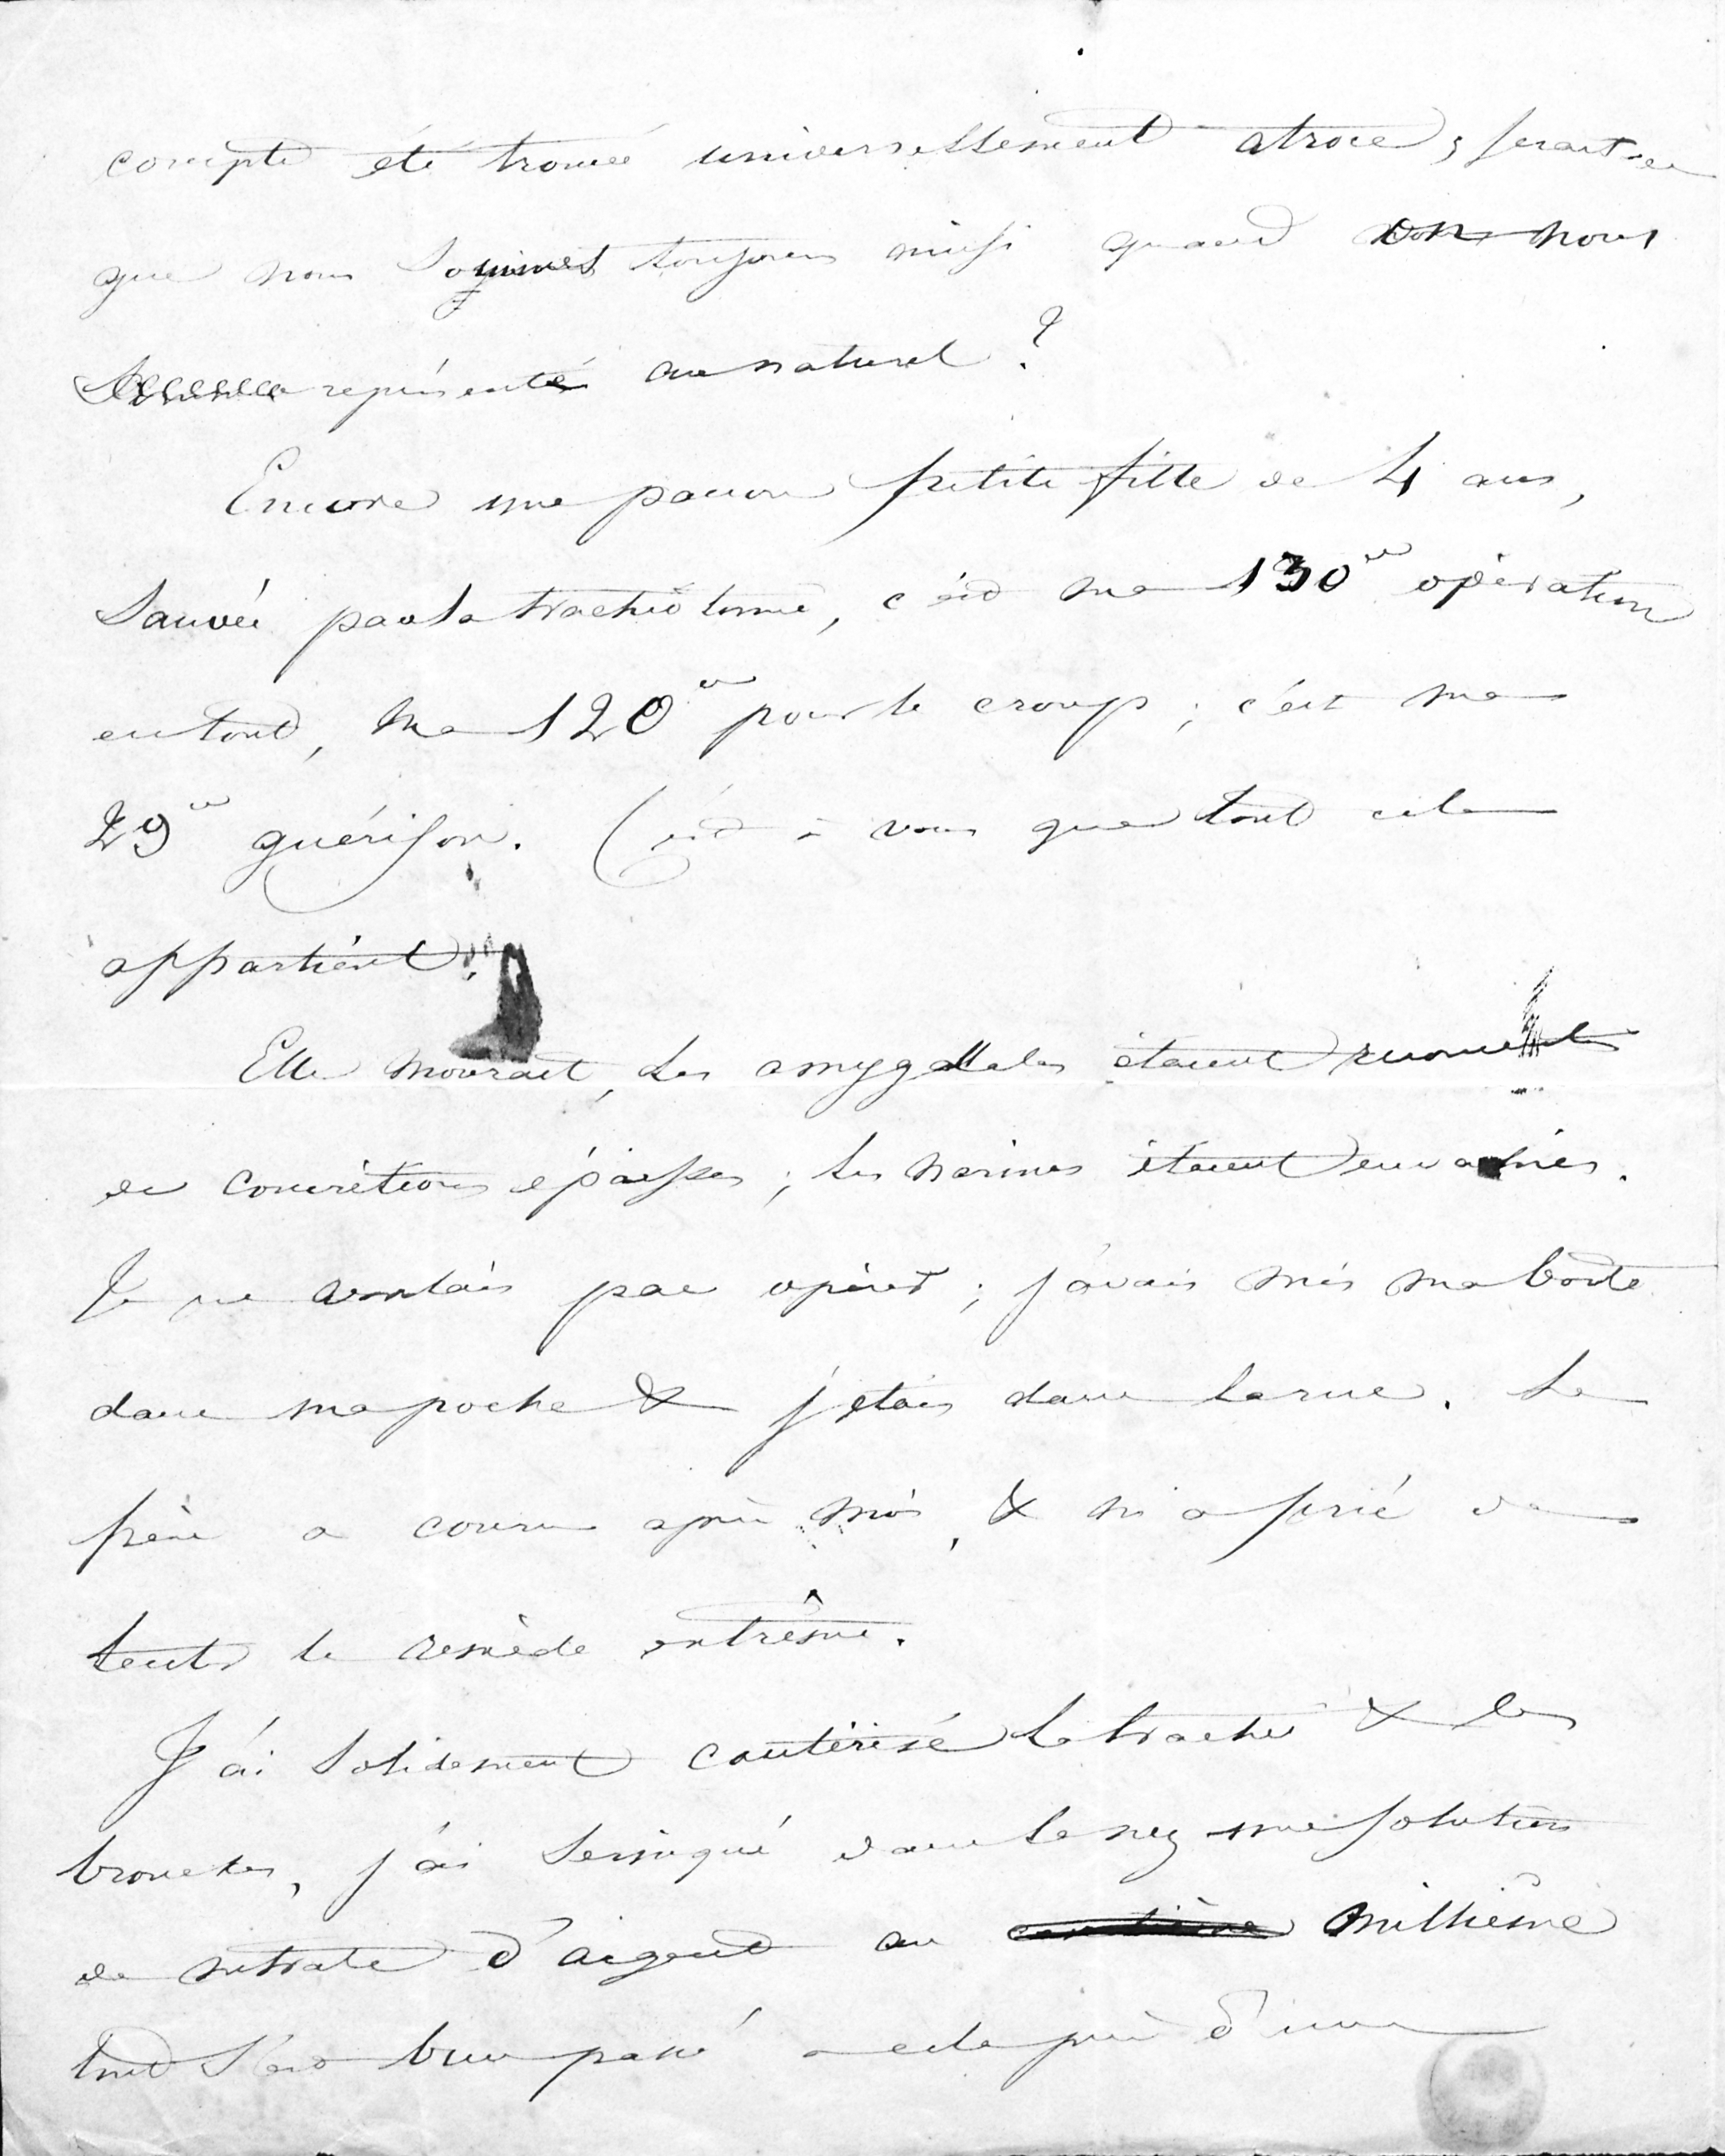 compte été trouvé universellement atroce ; serait-ce
que nous soyons toujours ainsi quand on nous
représente au naturel ?
Encore une pauvre petite fille de 4 ans,
Sauvée par la trachéotomie, c'est ma 130e opération
en tout, ma 120e pour le croup ; c'est ma
29e guérison. C'est à vous que tout cela
appartient.
Elle mourait, les amygdales étaient
de concrétions épaisses ; les narines étaient envahies.
Je ne voulais pas opérer ; j'avais mis ma boîte
dans ma poche & j'étais dans la rue. Le
père a couru après moi, & m'a prié de
tenter le remède extrême.
J'ai solidement cautérisé la trachée & les
bronches, j'ai seringué dans le nez une solution
de nitrate d'argent au centième millième
tout s'est bien passé à cela près d'une